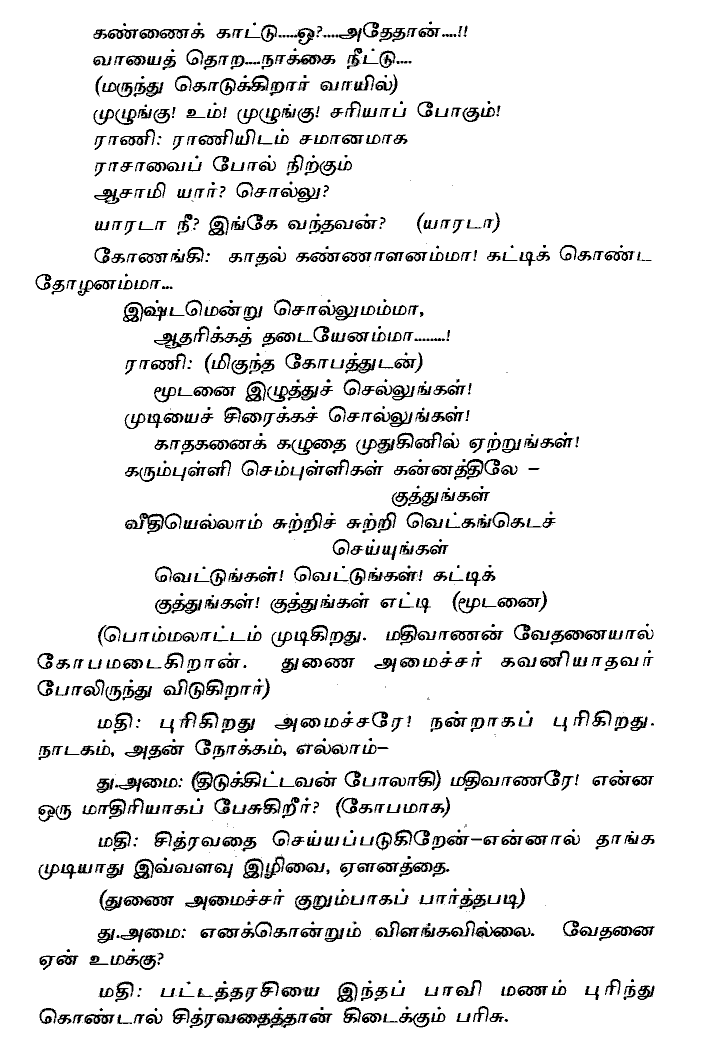 கண்ணைக் காட்டு.....ஒ?....அதேதான்....!!
வாயைத் தொற....நாக்கை நீட்டு....
(மருந்து கொடுக்கிறார் வாயில்)
முழுங்கு! உம்! முழுங்கு! சரியாப் போகும்!
ராணி: ராணியிடம் சமானமாக
ராசாவைப் போல் நிற்கும்
ஆசாமி யார்? சொல்லு?
யாரடா நீ? இங்கே வந்தவன்? (யாரடா)
கோணங்கி: காதல் கண்ணாளனம்மா! கட்டிக் கொண்ட
தோழனம்மா...
இஷ்டமென்று சொல்லுமம்மா,
ஆதரிக்கத் தடையேனம்மா.........!
ராணி: (மிகுந்த கோபத்துடன்)
மூடனை இழுத்துச் செல்லுங்கள்!
முடியைச் சிரைக்கச் சொல்லுங்கள்!
காதகனைக் கழுதை முதுகினில் ஏற்றுங்கள்!
கரும்புள்ளி செம்புள்ளிகள் கன்னத்திலே –
குத்துங்கள்
வீதியெல்லாம் சுற்றிச் சுற்றி வெட்கங்கெடச்
செய்யுங்கள்
வெட்டுங்கள்! வெட்டுங்கள்! கட்டிக்
குத்துங்கள்! குத்துங்கள் எட்டி (மூடனை)
(பொம்மலாட்டம் முடிகிறது. மதிவாணன் வேதனையால்
கோபமடைகிறான். துணை அமைச்சர் கவனியாதவர்
போலிருந்து விடுகிறார்)
மதி: புரிகிறது அமைச்சரே! நன்றாகப் புரிகிறது.
நாடகம், அதன் நோக்கம், எல்லாம்–
து.அமை: (திடுக்கிட்டவன் போலாகி) மதிவாணரே! என்ன
ஒரு மாதிரியாகப் பேசுகிறீர்? (கோபமாக)
மதி: சித்ரவதை செய்யப்படுகிறேன்–என்னால் தாங்க
முடியாது இவ்வளவு இழிவை, ஏளனத்தை.
(துணை அமைச்சர் குறும்பாகப் பார்த்தபடி)
து.அமை: எனக்கொன்றும் விளங்கவில்லை. வேதனை
ஏன் உமக்கு?
மதி: பட்டத்தரசியை இந்தப் பாவி மணம் புரிந்து
கொண்டால் சித்ரவதைத்தான் கிடைக்கும் பரிசு.